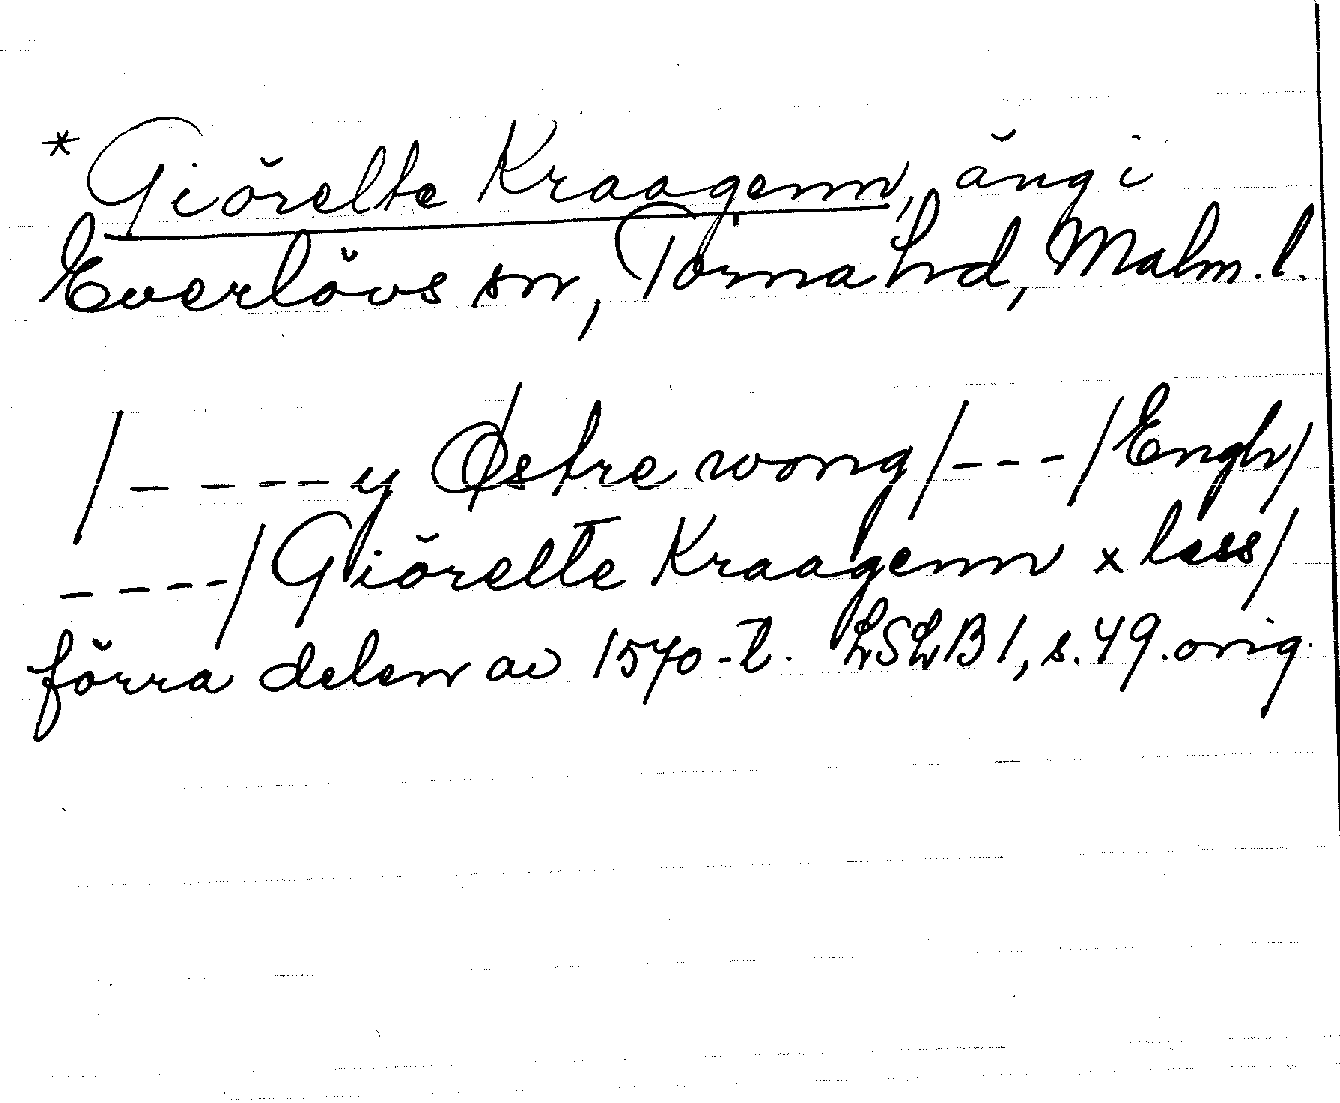 * Giörelte Kraagenn, äng i
Everlövs sn, Torna hd, Malm. l.
/ - - - - y Østre wong / - - - / Engh /
- - - - / Giörelte Kraagenn x less /
förra delen av 1570-t. LSLB 1, s. 49. orig.